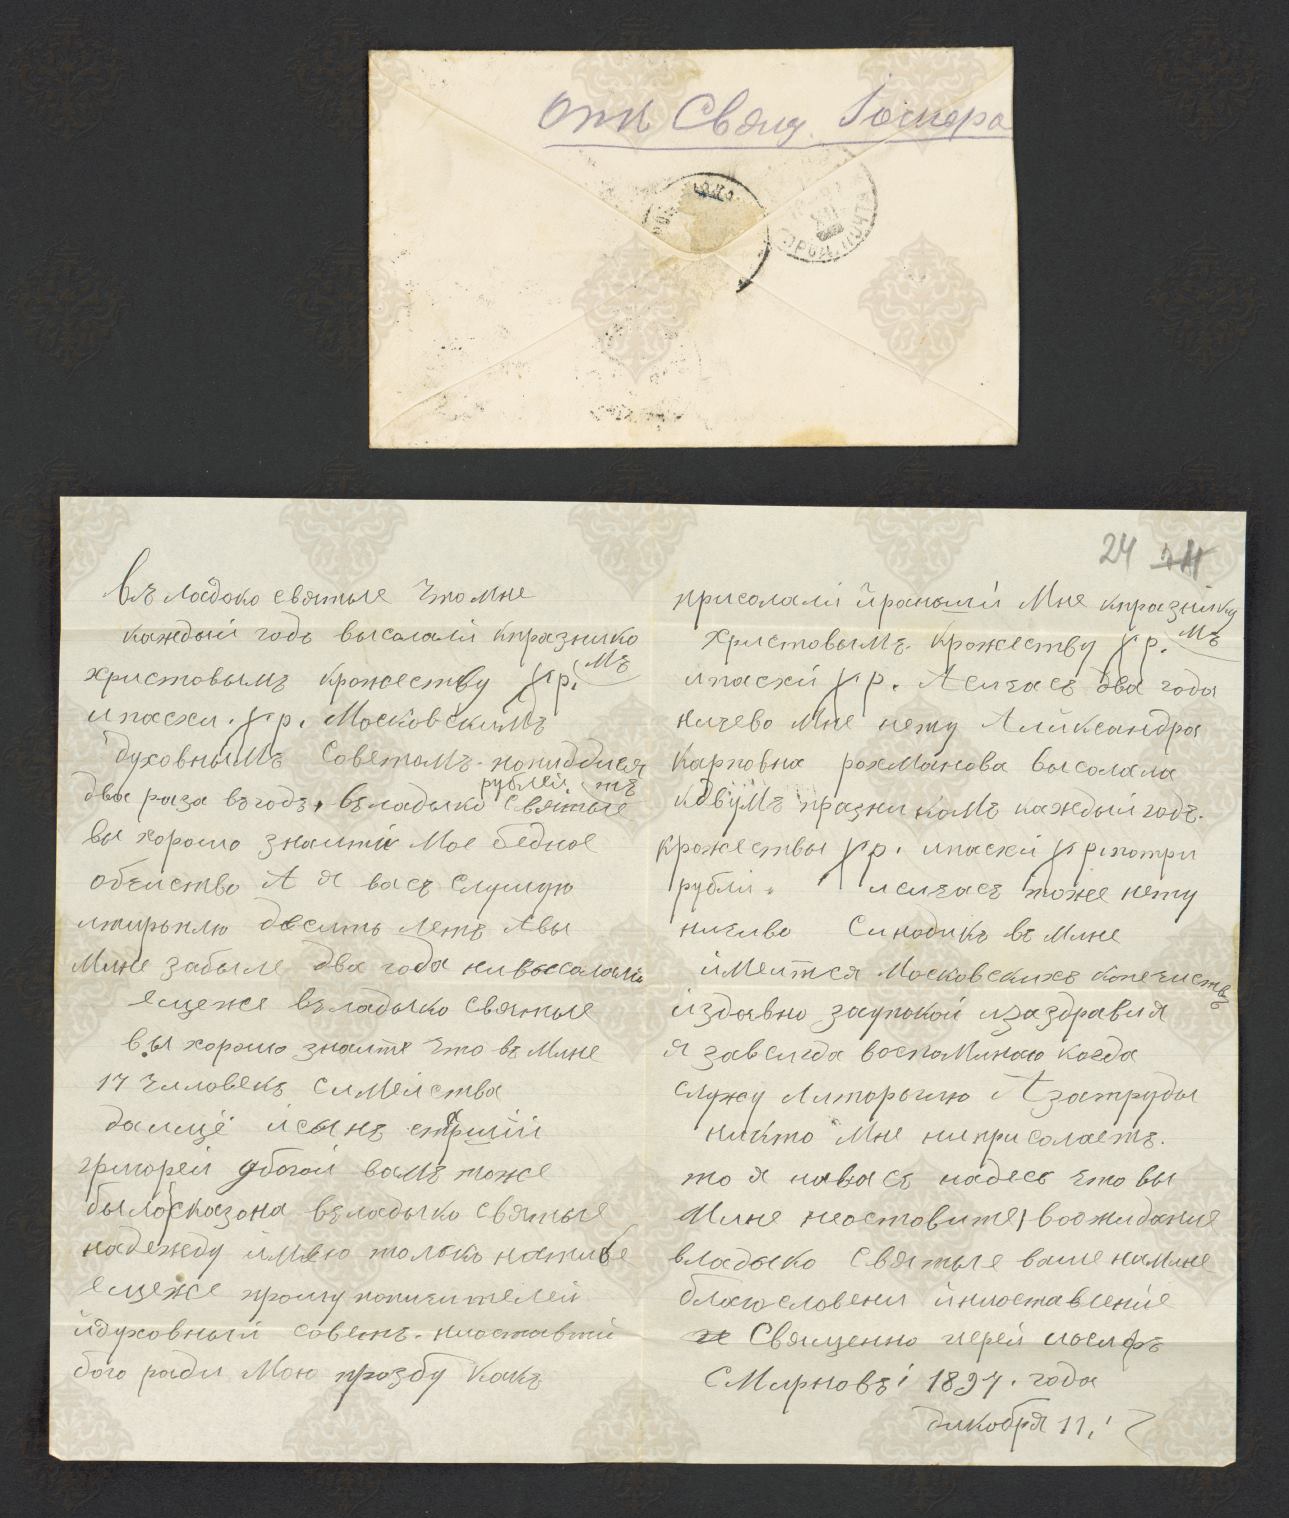 Отъ Свящ. Іосифа
24
Въладоко святые что мне
каждый годъ высолали кпразнико
мъ
христовымъ крожеству р.
ипасхи. р. Московскимъ
духовнымъ Советомъ
рублей.
два раза въгодъ, въладыко святые
вы хорошо знаити Мое бедное
А я васъ слушую
итирьплю десить летъ Авы
Мине забыле два года нивысолали
ещеже въладыко святые
вы хорошо знаите что въ Мине
17 чиловекъ симейства
далщё исынъ
григорей убогой вамъ тоже
былосказона въладыко святые
надежду имею только натибе
ещеже прошу попичителей
йдуховный советъ. ниоставти
бого ради Мою прозбу Какъ
присолали йраньши Мне кпразнику
мъ
Христовымъ крожеству р.
ипасхи р. Асичасъ два года
ничево Мне нету Алйксандра
Карповна рохманова высолала
кдвумъ празникомъ каждый годъ.
крожествы р. ипасхи р. потри
рубли. исичасъ тоже нету
ничиво Синодикъ въ Мине
ймеится Московскихъ
издавно заупокой изаздравия
я завсигда воспоминаю когда
служу Литоргию А затруды
никто Мне ниприсолаетъ.
то я навасъ надесь что вы
Мине неоставите, воожидание
владыко Святые ваше наМине
благословени йниоставление
Священно иерей иосифъ
Смирновъ 1897. года
дикобря 11.